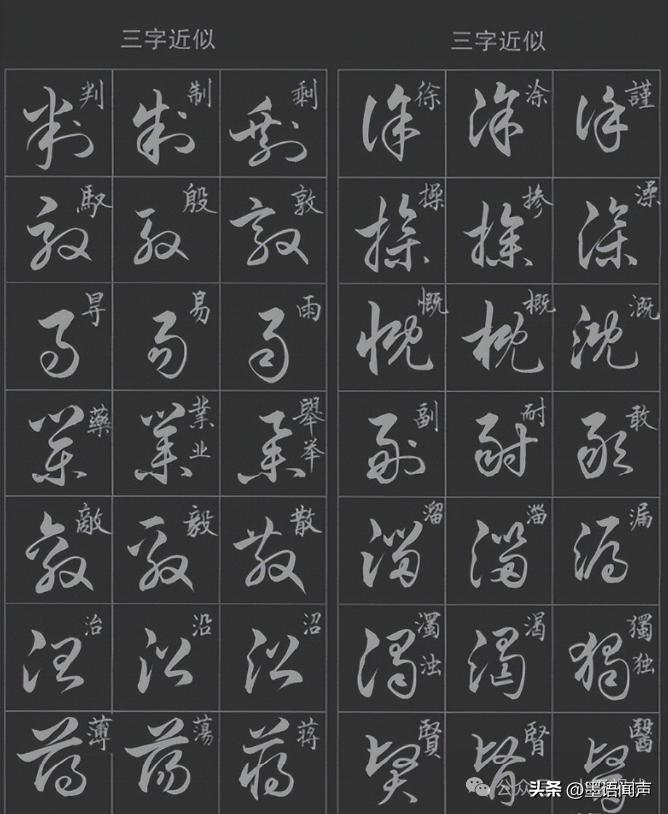 三字近似
判 制 剩
馭 殷 敦
昇 易 雨
藥 業业 舉举
敵 毅 散
治 沿 沼
薄 蕩 蒋
三字近似
徐 涂 謹
操 掺 澡
慨 概 溉
副 耐 敢
溜 淄 漏
濁浊 渴 獨独
賢 腎 醫
头条 @墨语闻声